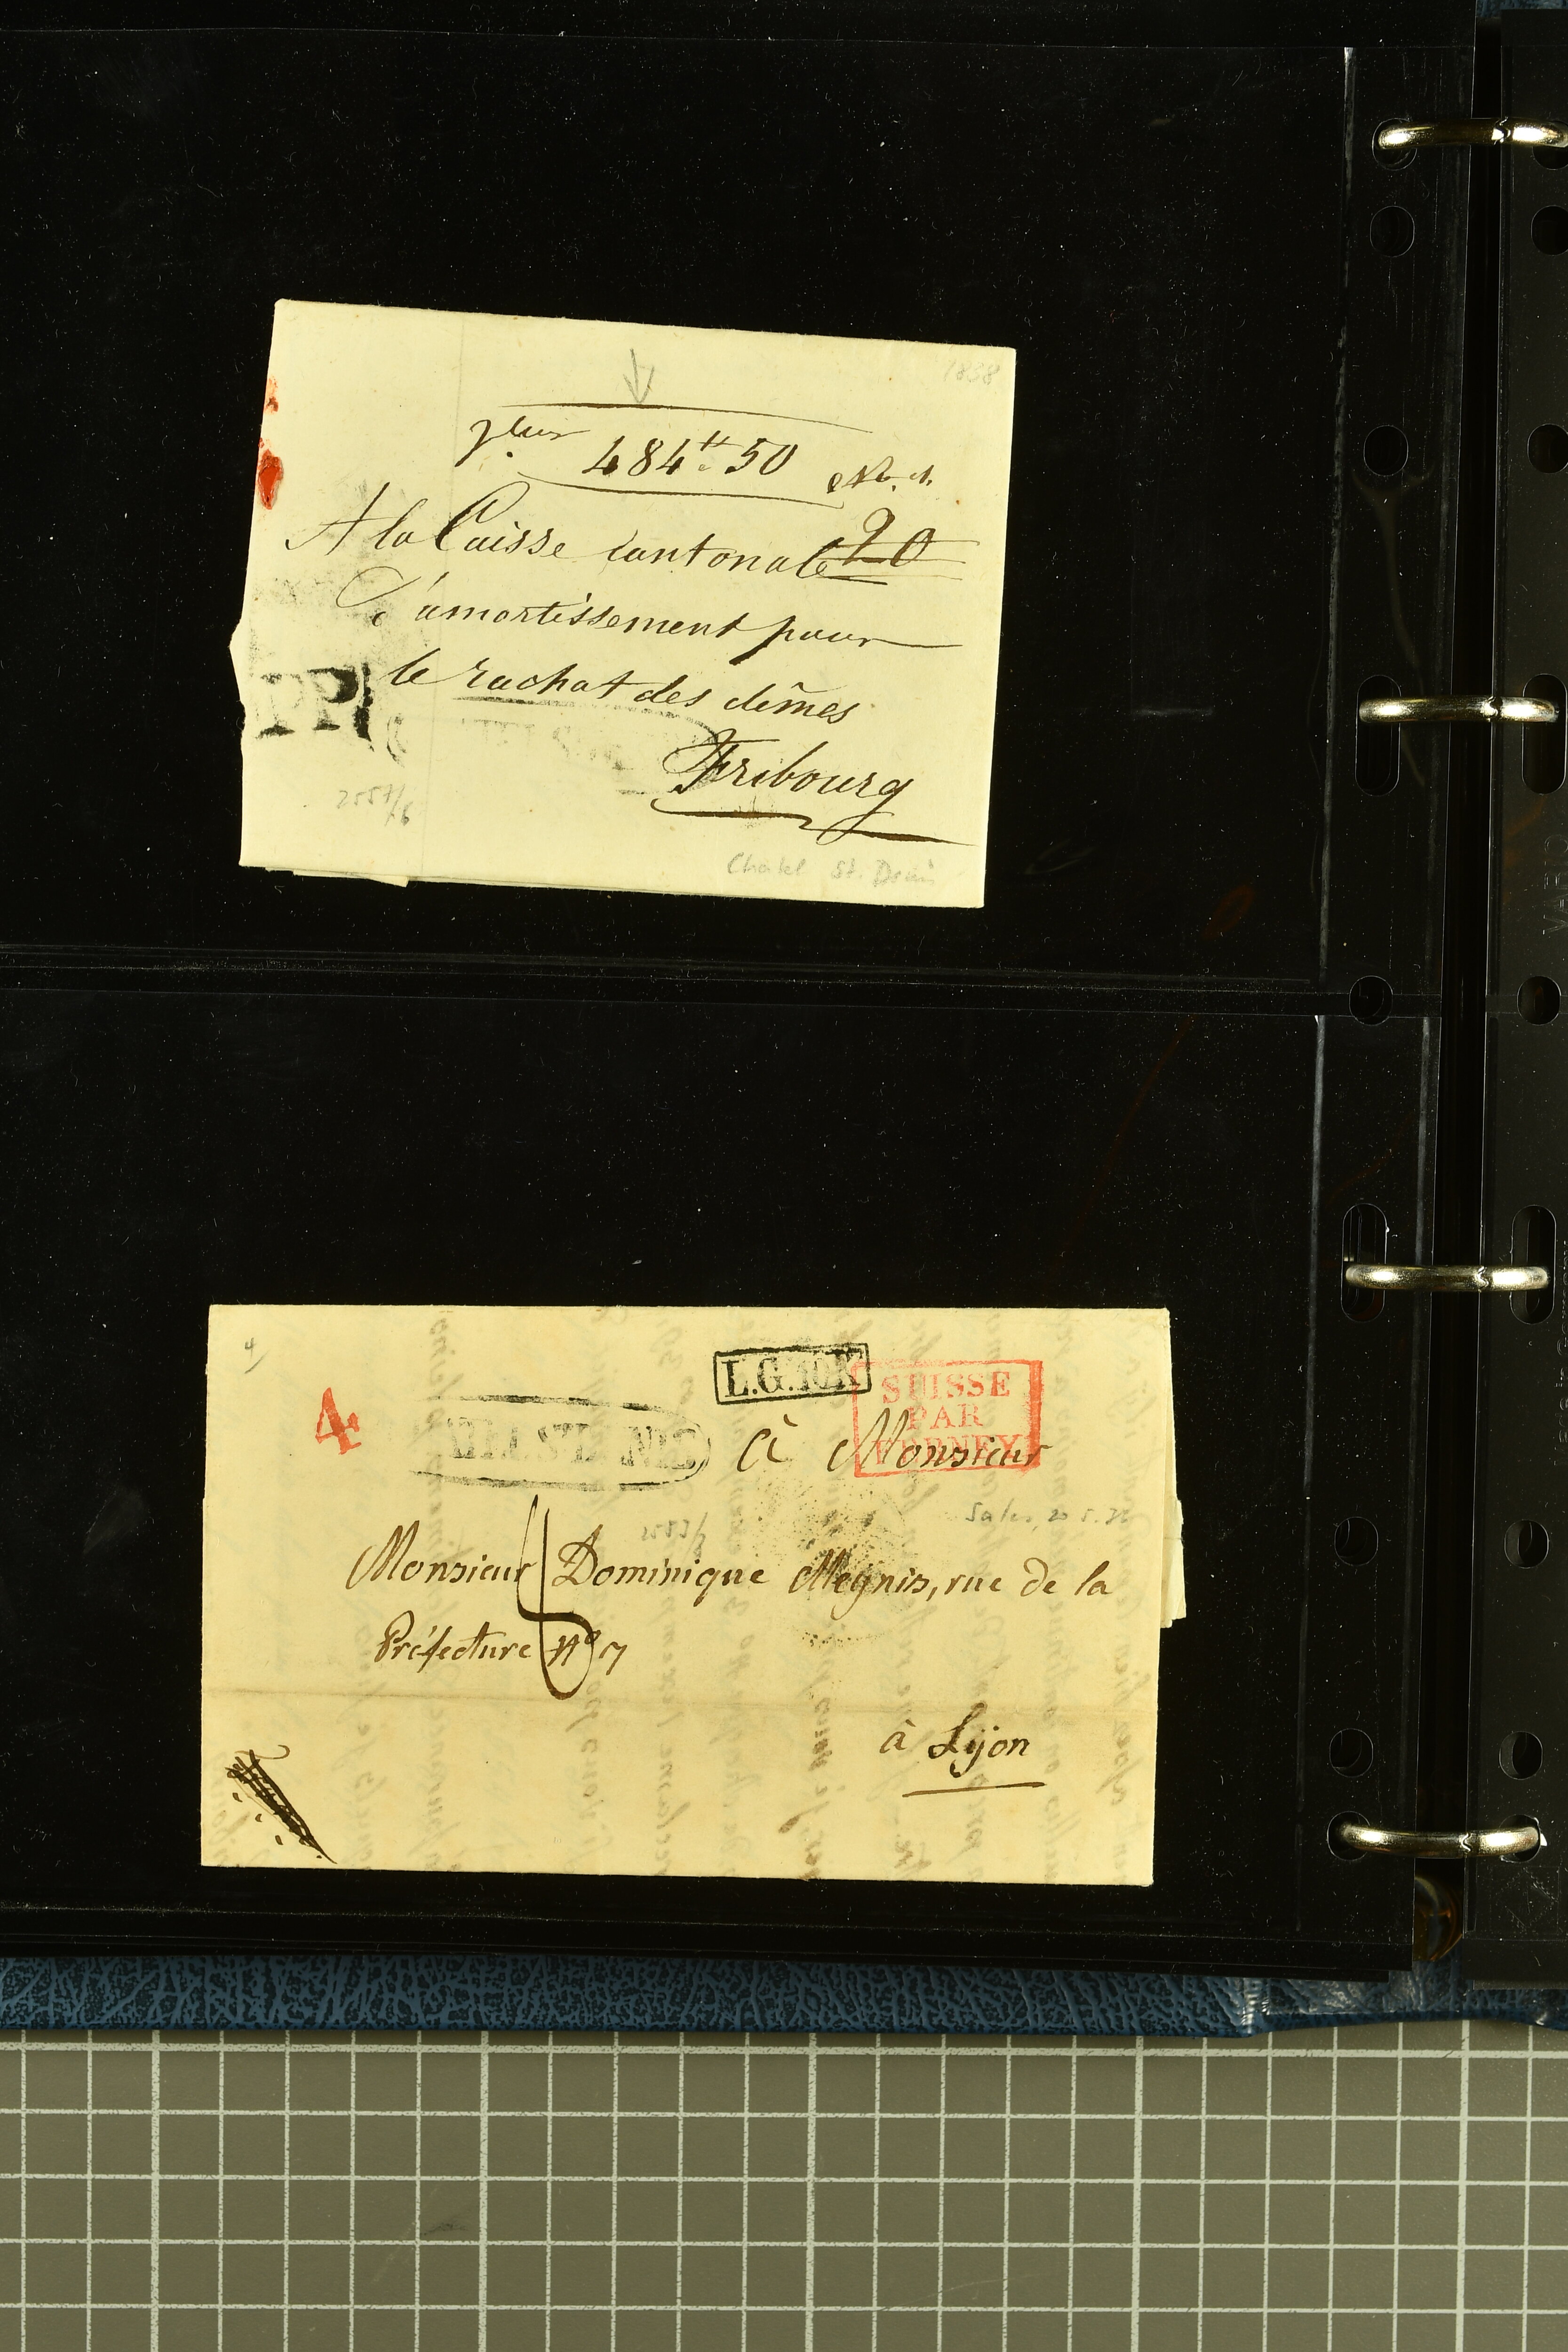 1838
484 50
A la Caisse cantonale 20
d'amortissement pour
le rachat des dîmes
PP
Fribourg
2557/6
Chatel St. Denis
4
4
L.G.10K
SUISSE
PAR
FERNEY
à Monsieur
Monsieur Dominique Megnis, rue de la
Préfecture N° 7
à Lyon